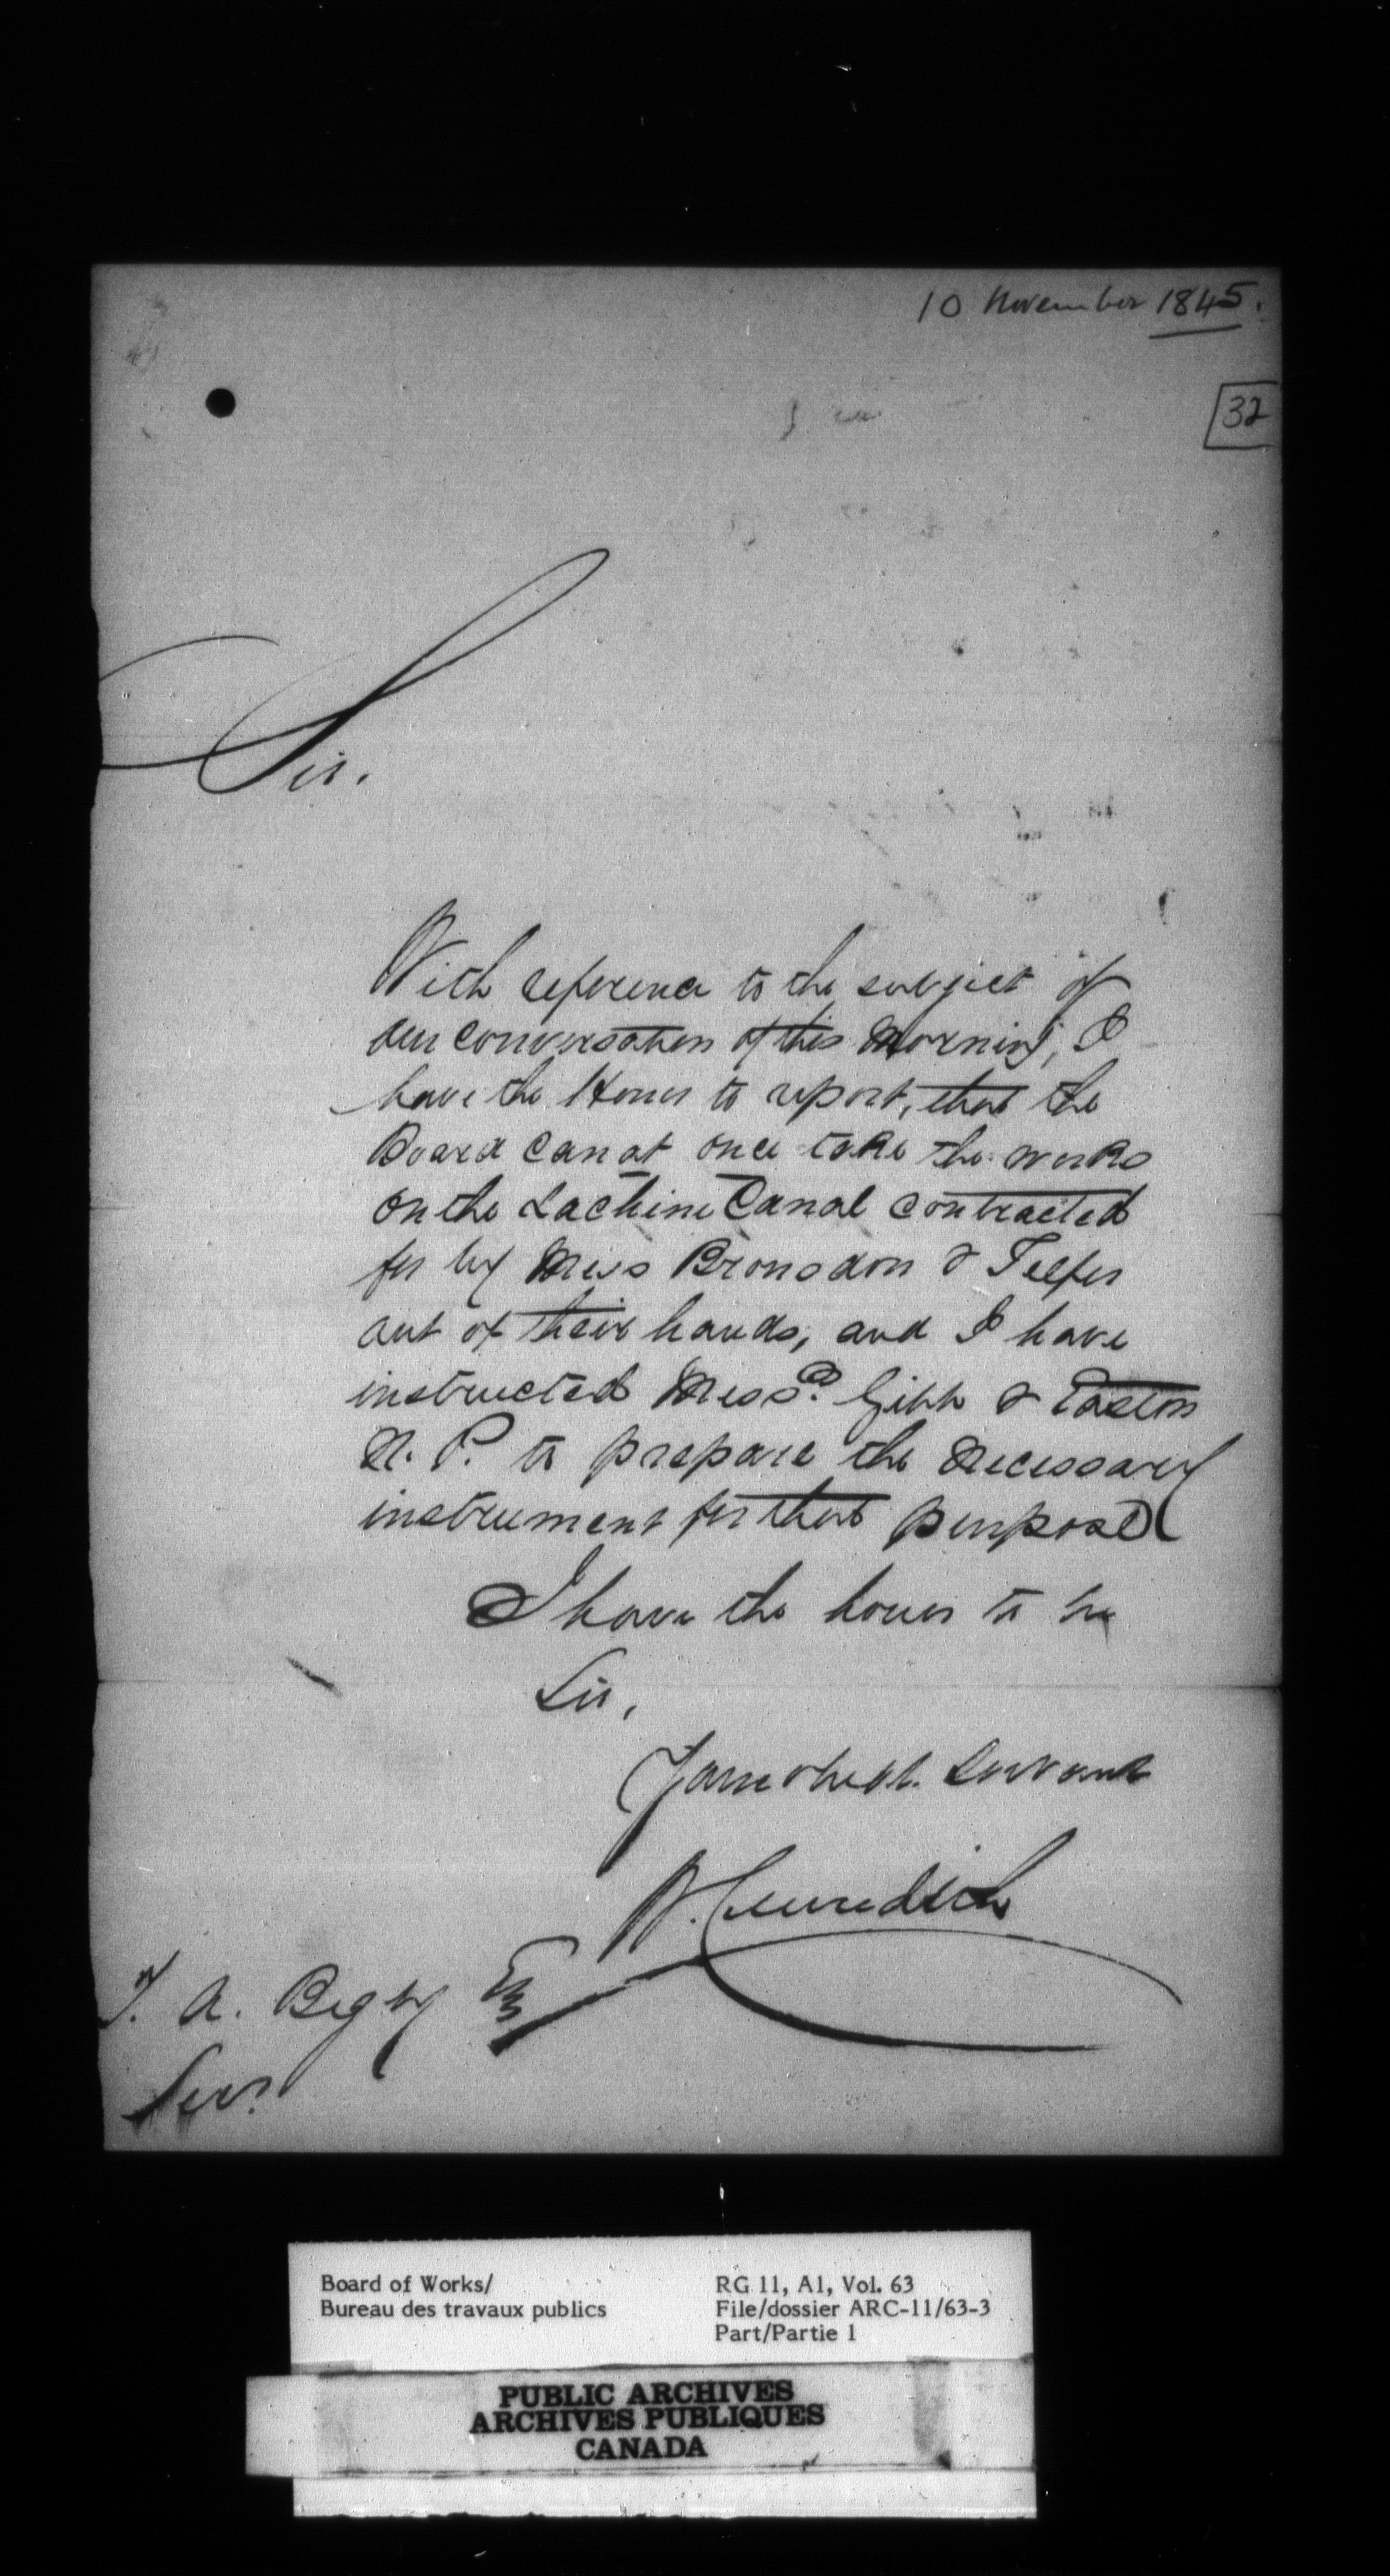 10 November 1845.
32
Sir.
With reference to the subject of
our conversation of this morning, I
have the Honor to report, that the
Board can at once take the works
on the Lachine Canal contracted
for by Mess Bronsdon & Telfer
out of their hands, and I have
instructed Mess.rs Gibb & Easton
N. P. to prepare the necessary
instrument for that purpose
I have the honor to be
Sir,
Your obedt. Servant
W. C. Meredith
T. A. Begly Esq
Secy.
Board of Works/
Bureau des travaux publics
RG 11, A1, Vol. 63
File/dossier ARC-11/63-3
Part/Partie 1
PUBLIC ARCHIVES
ARCHIVES PUBLIQUES
CANADA